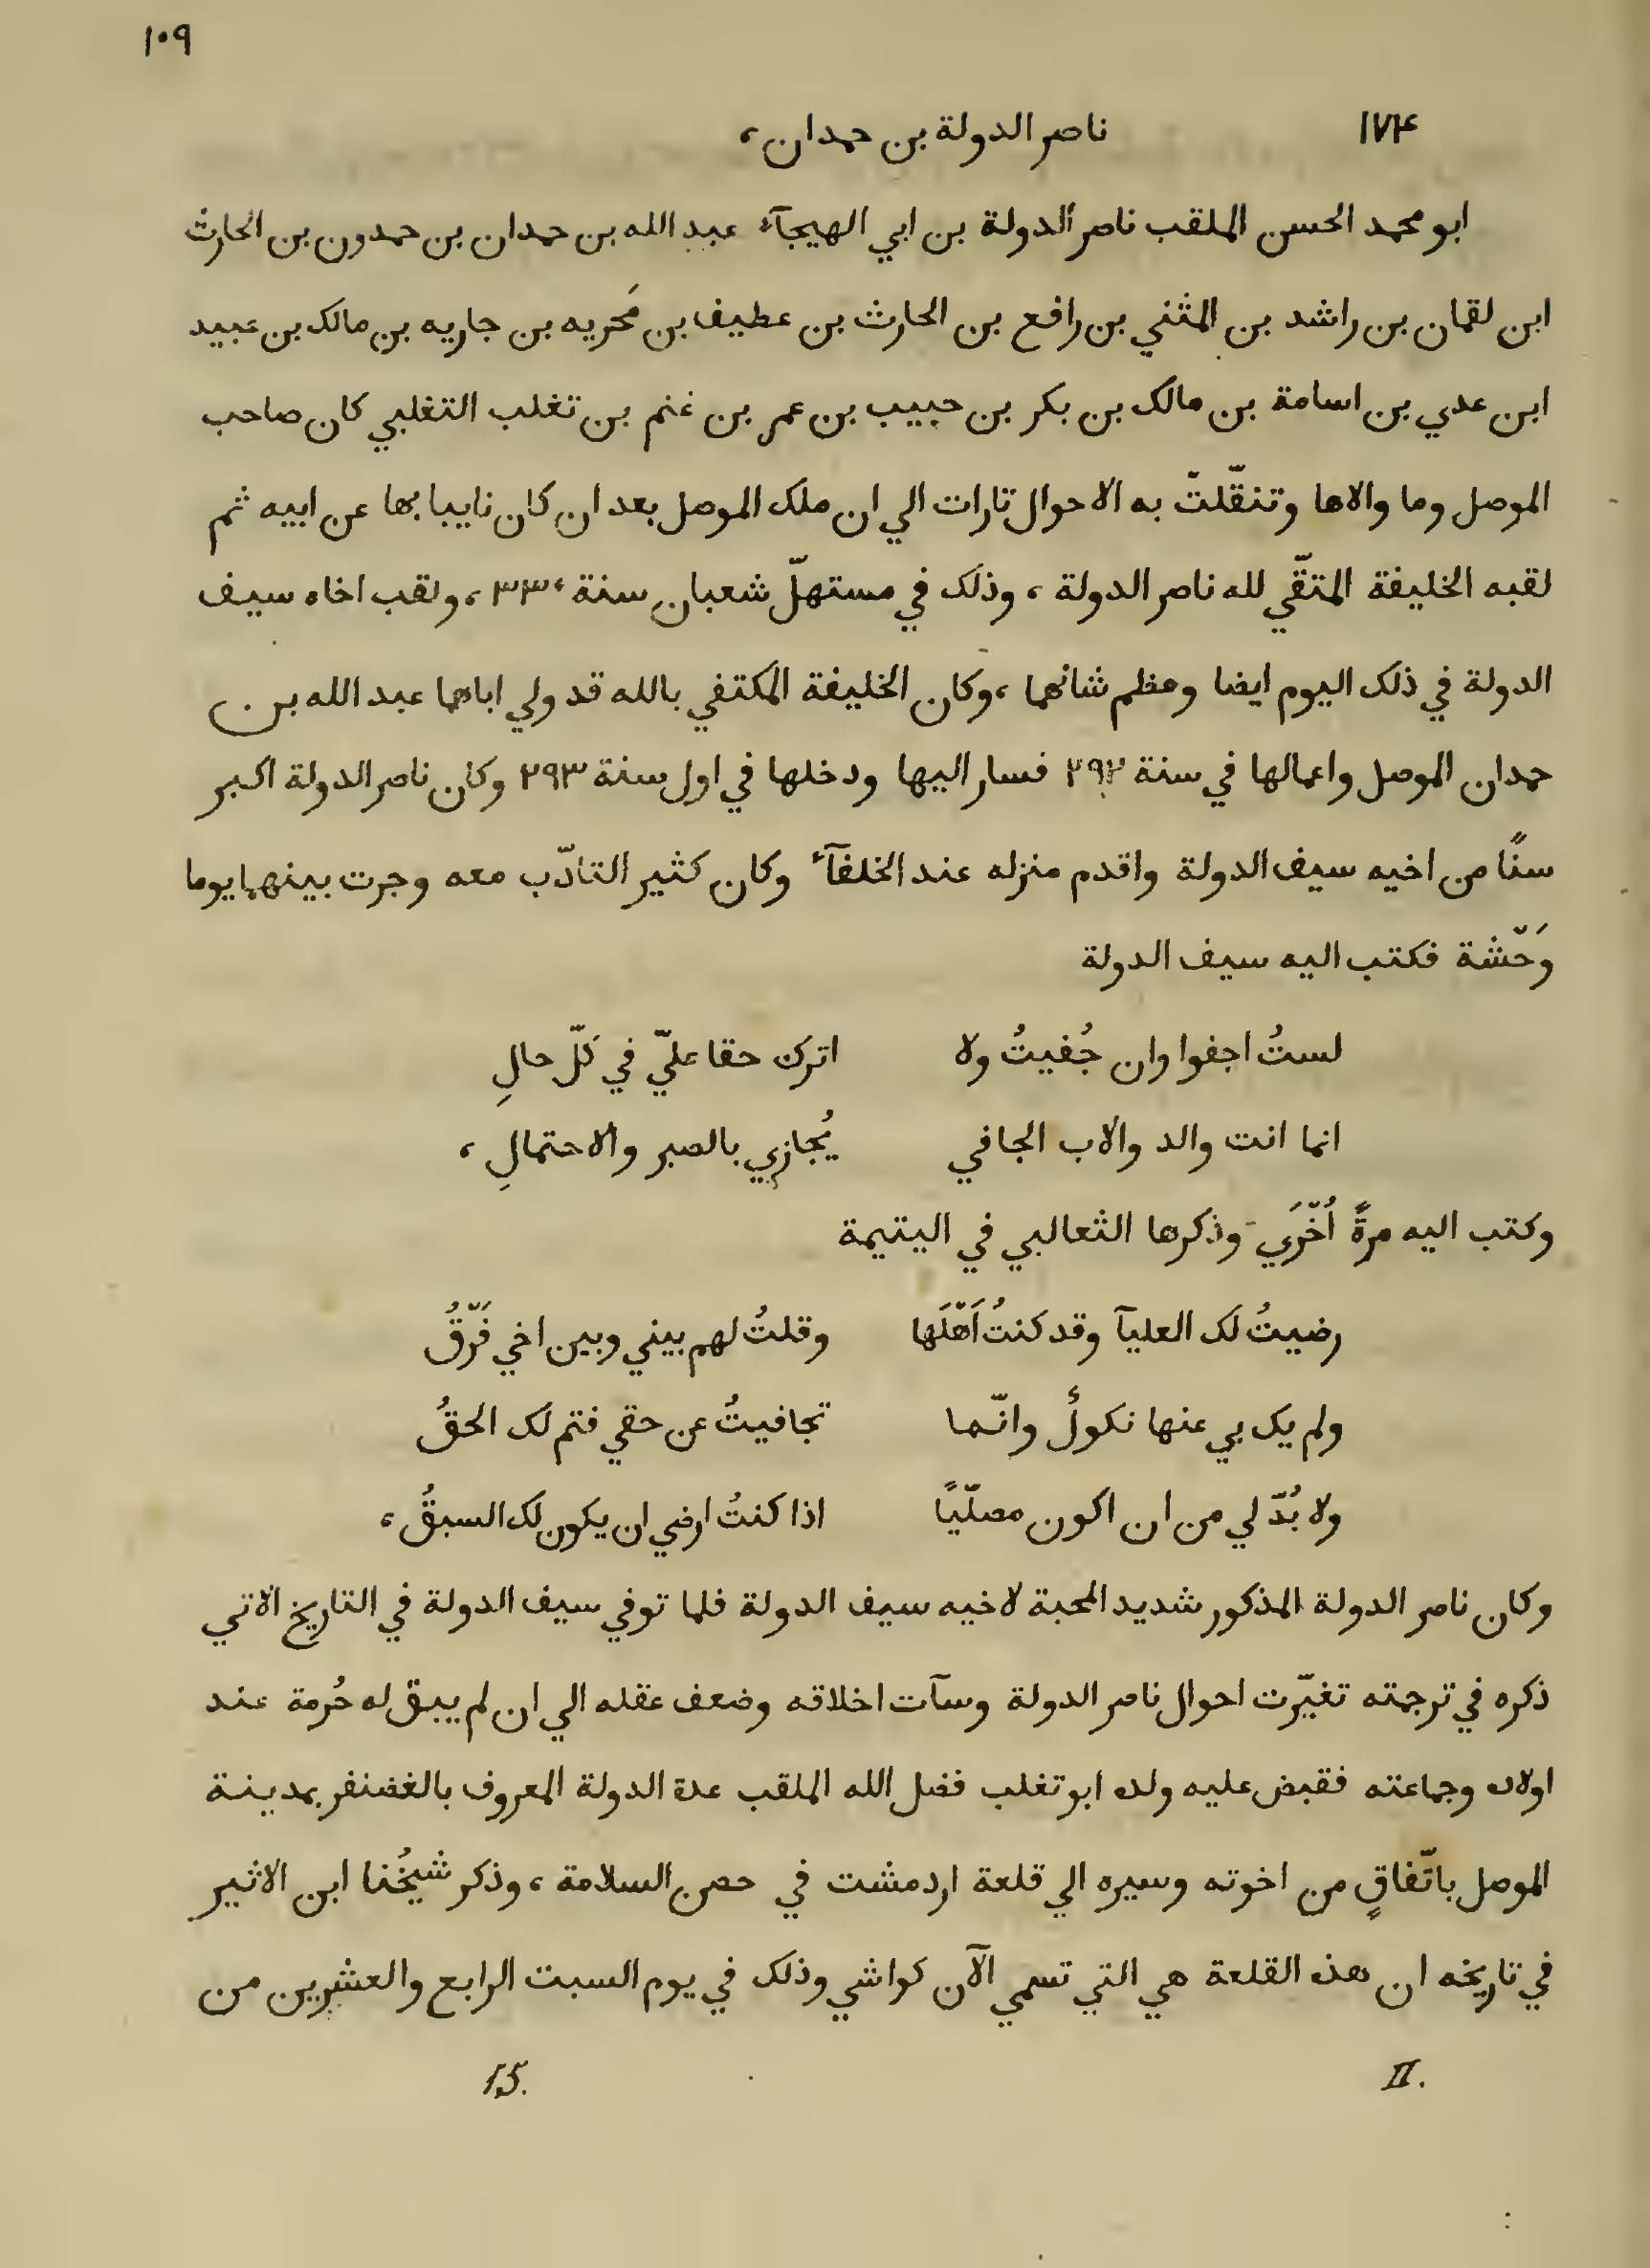 ١٠٩
١٧٤ ناصر الدولة بن حمدان،
ابو محمد الحسن الملقب ناصر الدولة بن ابي الهيجآء عبد الله بن حمدان بن حمدون بن الحارث
ابن لقمان بن راشد بن المثني بن رافع بن الحارث بن عطيف بن مَحربه بن جاريه بن مالك بن عبيد
ابن عدي بن اسامة بن مالك بن بكر بن حبيب بن عمر بن غنم بن تغلب التغلبي كان صاحب
الموصل وما والاها وتنقّلتْ به الاحوال تارات الي ان ملك الموصل بعد ان كان نايبا بها عن ابيه ثم
لقبه الخليفة المتقّي لله ناصر الدولة ، وذلك في مستهلّ شعبان سنة ٣٣٠، ولقب اخاه سيف
الدولة في ذلك اليوم ايضا وعظم شانهما ،وكان الخليفة المكتفي بالله قد ولي اباهما عبد الله بن
حمدان الموصل واعمالها في سنة ٢٩٢ فسار اليها ودخلها في اول سنة ٢٩٣ وكان ناصر الدولة اكبر
سنًّا من اخيه سيف الدولة واقدم منزله عند الخلفآء وكان كثير التادّب معه وجرت بينهما يوما
وَحْشة فكتب اليه سيف الدولة
لستُ اجفوا وان جُفيتُ ولا اترك حقا عليّ في كلّ حالِ
انما انت والد والاب الجافي يُجازي بالصبر والاحتمالِ ،
وكتب اليه مرةً اُخْرَي وذكرها الثعالبي في اليتيمة
رضيتُ لك العليآ وقد كنتُ اَهْلَها وقلتُ لهم بيني وبين اخي فَرْقُ
ولم يك بي عنها نكولٌ وانّما تجافيتُ عن حقي فتم لك الحقُ
ولا بُدّ لي من ان اكون مصلّيًا اذا كنتُ ارضي ان يكون لك السبقُ ،
وكان ناصر الدولة المذكور شديد المحبة لاخيه سيف الدولة فلما توفي سيف الدولة في التاريخ الاتي
ذكره في ترجمته تغيّرت احوال ناصر الدولة وسآت اخلاقه وضعف عقله الي ان لم يبق له حُرمة عند
اولاده وجماعته فقبض عليه ولده ابو تغلب فضل الله الملقب عدة الدولة المعروف بالغضنفر بمدينة
الموصل باتّفاقٍ من اخوته وسيره الي قلعة اردمشت في حصن السلامة ، وذكر شيخُنا ابن الاثير
في تاريخه ان هذه القلعة هي التي تسمي الآن كواشي وذلك في يوم السبت الرابع والعشرين من
II. 15.